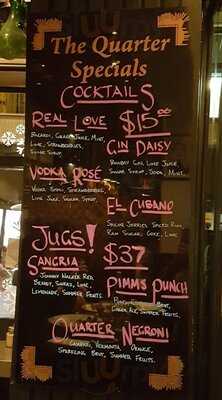 The Quarter
Specials
COCKTAILS
REAL LOVE
$15.00
BACARDI, JUICE, MINT,
LIME, STRAWBERRIES,
SUGAR SYRUP.
GIN DAISY
BOMBAY GIN, LIME JUICE,
SUGAR SYRUP, SODA, MINT.
VODKA ROSÉ
VODKA, ROSÉ, STRAWBERRIES,
LIME JUICE, SUGAR SYRUP.
EL CUBANO
SAILOR JERRIES SPICED RUM,
RAW SUGAR, COKE, LIME
JUGS!
$37
SANGRIA
JOHNNY WALKER RED,
BRANDY, SHIRAZ, LIME,
LEMONADE, SUMMER FRUITS.
PIMMS PUNCH
PIMMS, BRNT,
GINGER ALE, SUMMER FRUITS.
QUARTER NEGRONI
CAMPARI, VERMOUTH, ORANGE,
SPARKLING BRNT, SUMMER FRUITS.